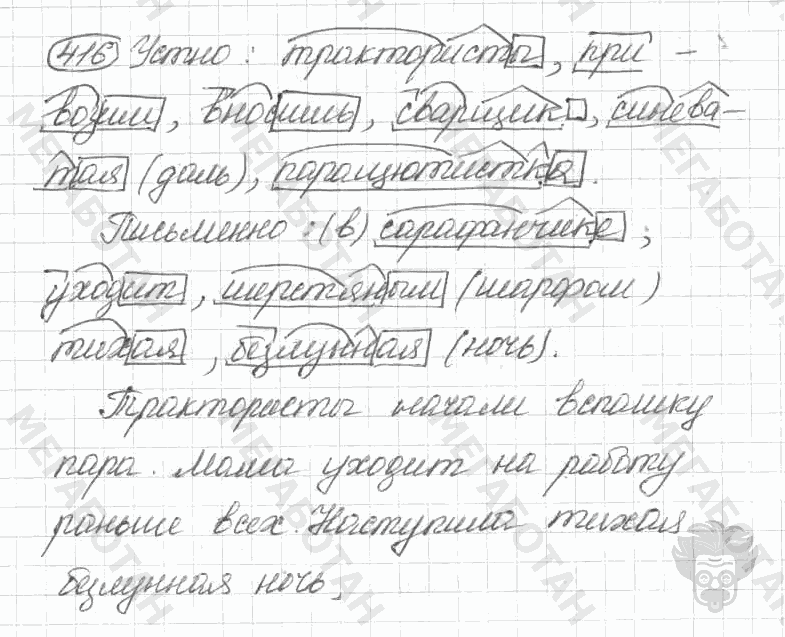 416 Устно: трактористы, при-
возим, вносишь, сварщик, синева-
тая (даль), парашютистка.
Письменно: (в) сарафанчике,
уходит, шерстяным (шарфом)
тихая, безлунная (ночь).
Трактористы начали вспашку
пара. Мама уходит на работу
раньше всех. Наступила тихая
безлунная ночь.
МЕГАБОТАН